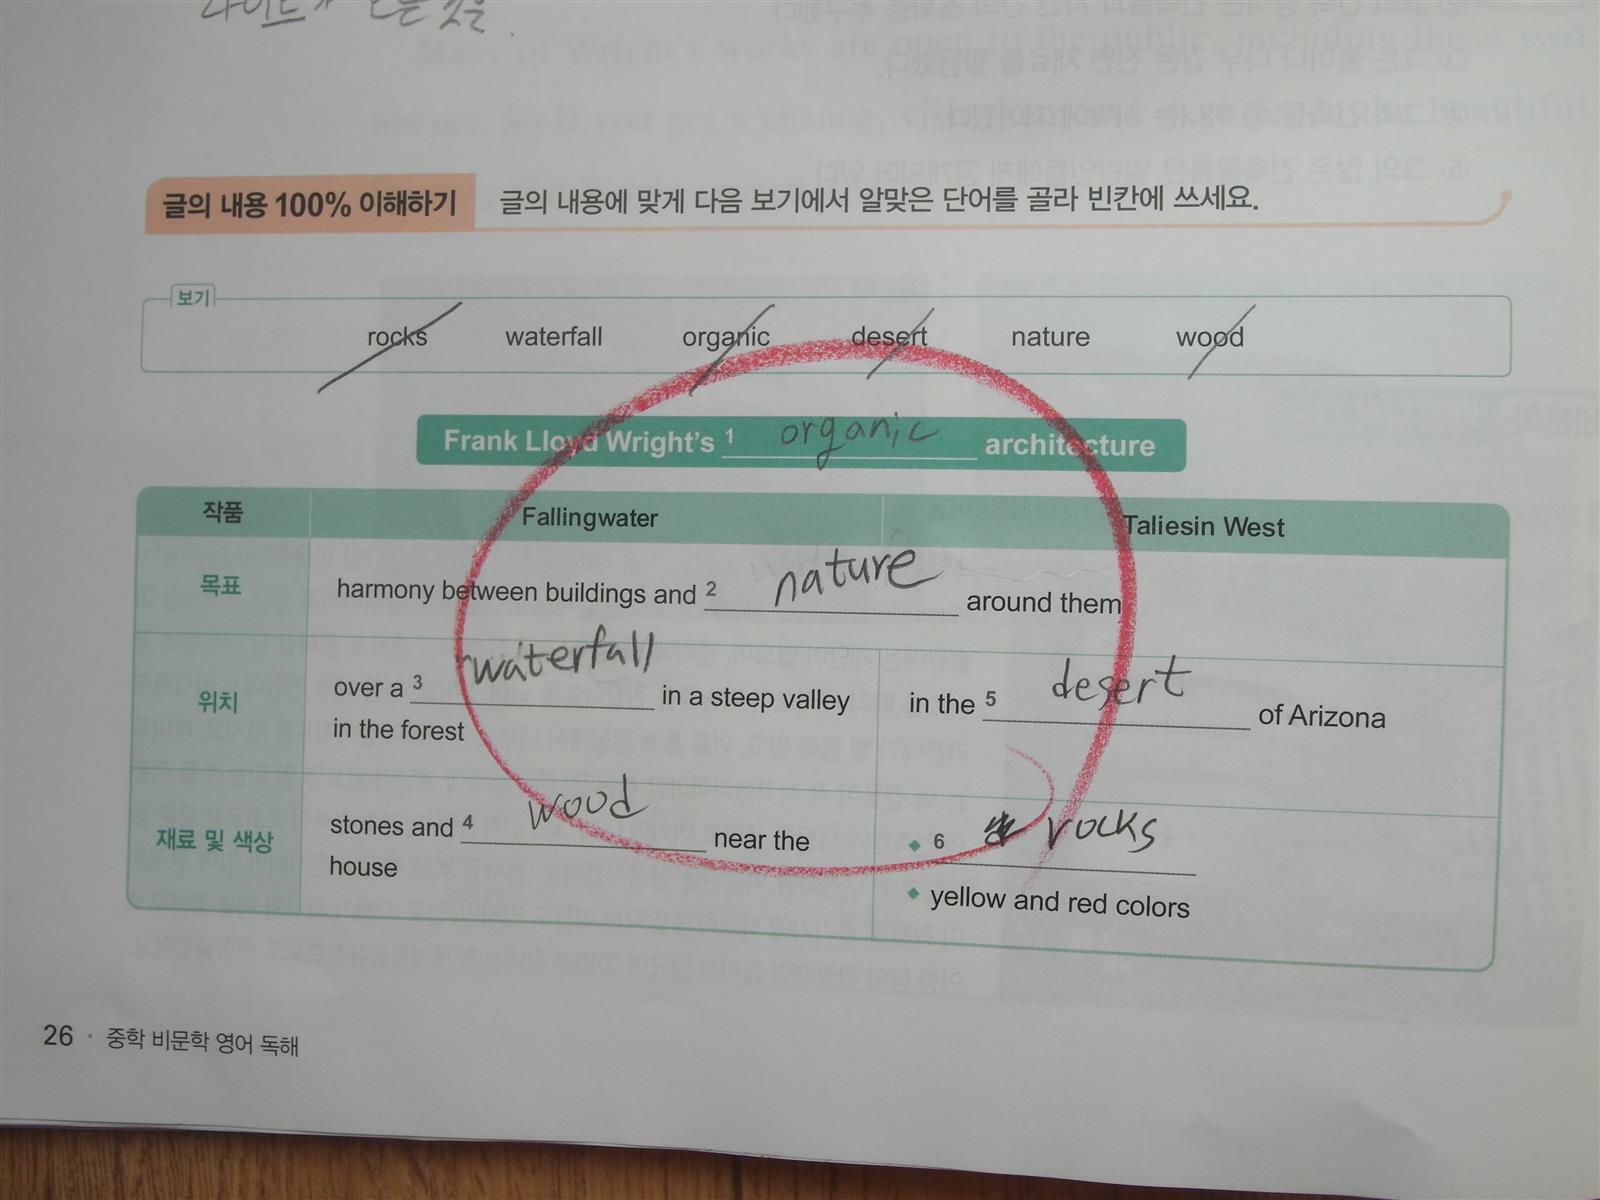 라이트가 모든 것을
Many of Wright's works are open to the public, including these two
houses. So if you get a chance, visit
글의 내용 100% 이해하기 글의 내용에 맞게 다음 보기에서 알맞은 단어를 골라 빈칸에 쓰세요.
보기
rocks waterfall organic desert nature wood
Frank Lloyd Wright's 1 organic architecture
작품 Fallingwater Taliesin West
목표 harmony between buildings and 2 nature around them
위치 over a 3 waterfall in a steep valley in the forest
in the 5 desert of Arizona
재료 및 색상 stones and 4 wood near the house
◆ 6 rocks
◆ yellow and red colors
26 · 중학 비문학 영어 독해